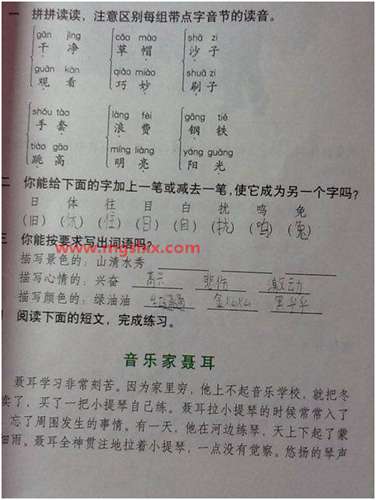 一 拼拼读读，注意区别每组带点字音节的读音。
gān jìng cǎo mào shā zi
干净 草帽 沙子
guān kàn qiǎo miào shuā zi
观看 巧妙 刷子
shǒu tào làng fèi gāng tiě
手套 浪费 钢铁
tiào gāo míng liàng yáng guāng
跳高 明亮 阳光
二 你能给下面的字加上一笔或减去一笔，使它成为另一个字吗？
日 体 往 目 白 扰 鸣 免
(旧) (休) (住) (日) (自) (扰) (鸣) (兔)
三 你能按要求写出词语吗？
www.mgshxx.com
描写景色的：山清水秀
描写心情的：兴奋 高兴 悲伤 激动
描写颜色的：绿油油 金灿灿 黑乎乎
阅读下面的短文，完成练习。
音乐家聂耳
聂耳学习非常刻苦。因为家里穷，他上不起音乐学校，就把冬
卖了，买了一把小提琴自己练。聂耳拉小提琴的时候常常入了
忘了周围发生的事情。有一天，他在河边练琴，天上下起了蒙
细雨。聂耳全神贯注地拉着小提琴，一点没有觉察。悠扬的琴声